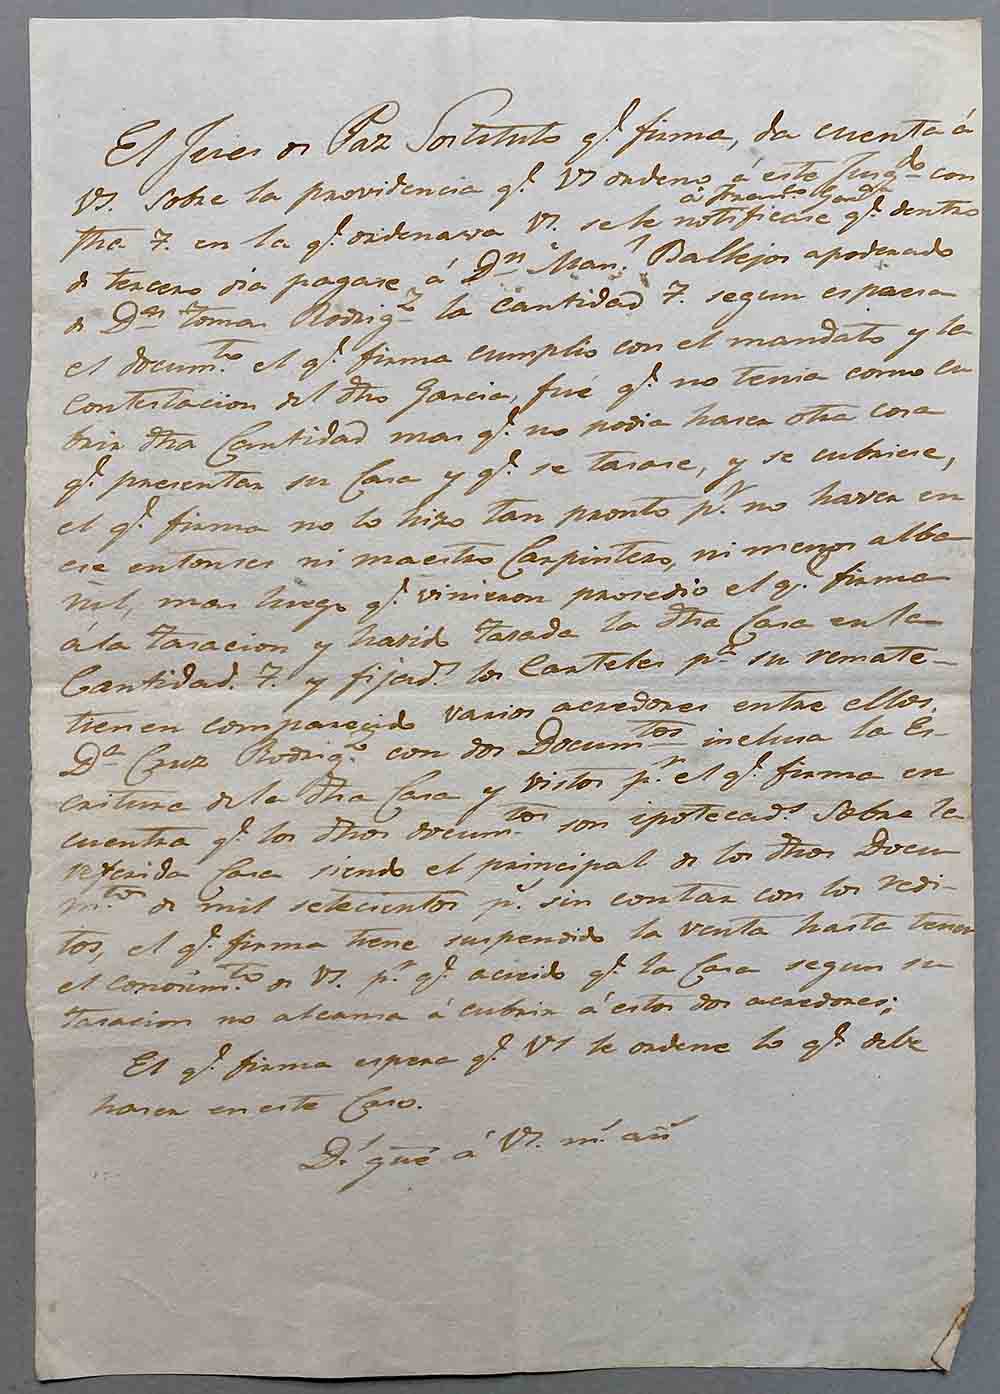 El Jues de Paz Sostituto q.e firma, da cuenta á
VS. sobre la providencia q.e VS ordeno á este Jusg.do con
á Fran.co Garcia
fha 7. en la q.e ordenava VS. se le notificase q.e dentro
de tercero dia pagase á D.n Man.l Ballejos apoderado
de D.n Tomas Rodrig.z la cantidad 7. segun espresa
el docum.to el q.e firma cumplio con el mandato y la
contestacion del dho Garcia, fué q.e no tenia como cu
brir dha Cantidad mas q.e no podia haser otra cosa
q.e presentar su Casa y q.e se tasase, y se cubriese,
el q.e firma no lo hizo tan pronto p.r no haver en
ese entonses ni maestro Carpintero, ni menos alba
ñil, mas luego q.e vinieron prosedio el q.e firma
á la tasacion y havid tasada la dha Casa en la
Cantidad. 7. y fijad.s los Carteles p.a su remate
tienen comparecido varios acredores entre ellos,
D.a Cruz Rodrig.z con dos Docum.tos inclusa la Es-
critura de la dha Casa y vistos p.r el q.e firma en
cuentra q.e los dhos docum.tos son ipotecad.s sobre la
referida Casa siendo el principal de los dhos Docu
m.tos de mil setecientos p.s sin contar con los redi-
tos, el q.e firma tiene suspendido la venta hasta tener
el conosim.to de VS. p.r q.e acreido q.e la Casa segun su
tasacion no alcansa á cubrir á estos dos acredores;
El q.e firma espera q.e VS le ordene lo q.e debe
haser en este Caso.
D.s gué á VS. m.s añ